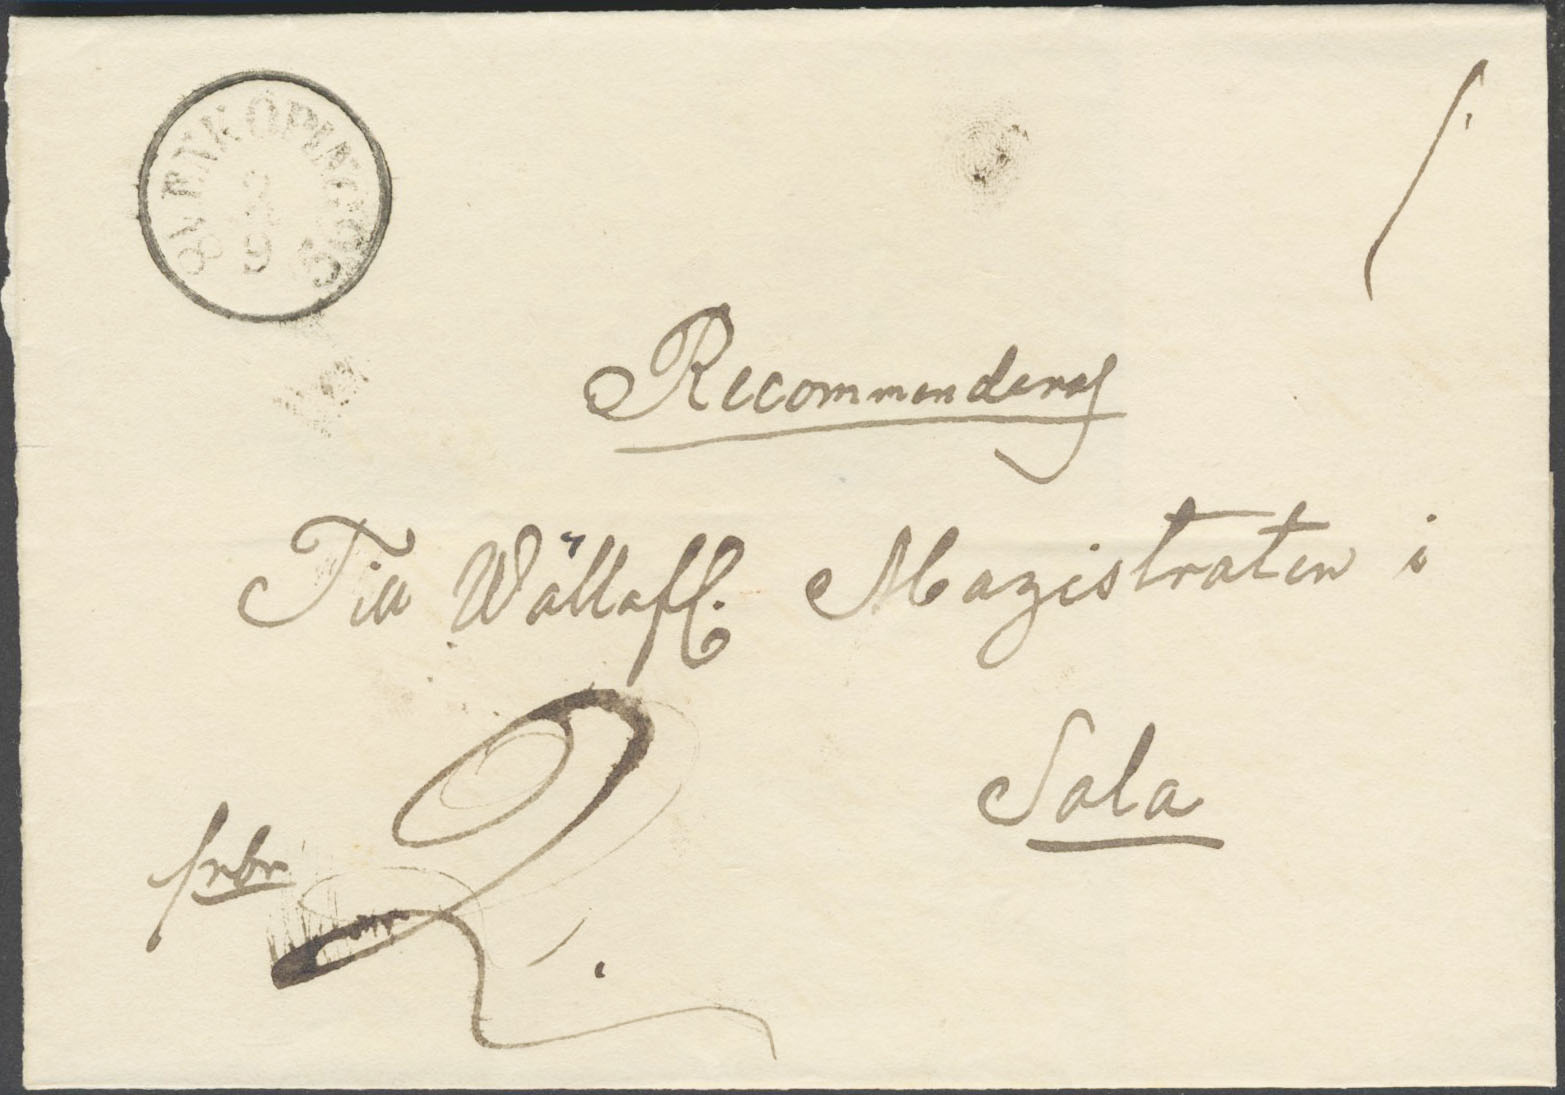 ENKÖPING
2
9
1
Recommenderas
Till Wällofl. Magistraten i
Sala
frbr
2.